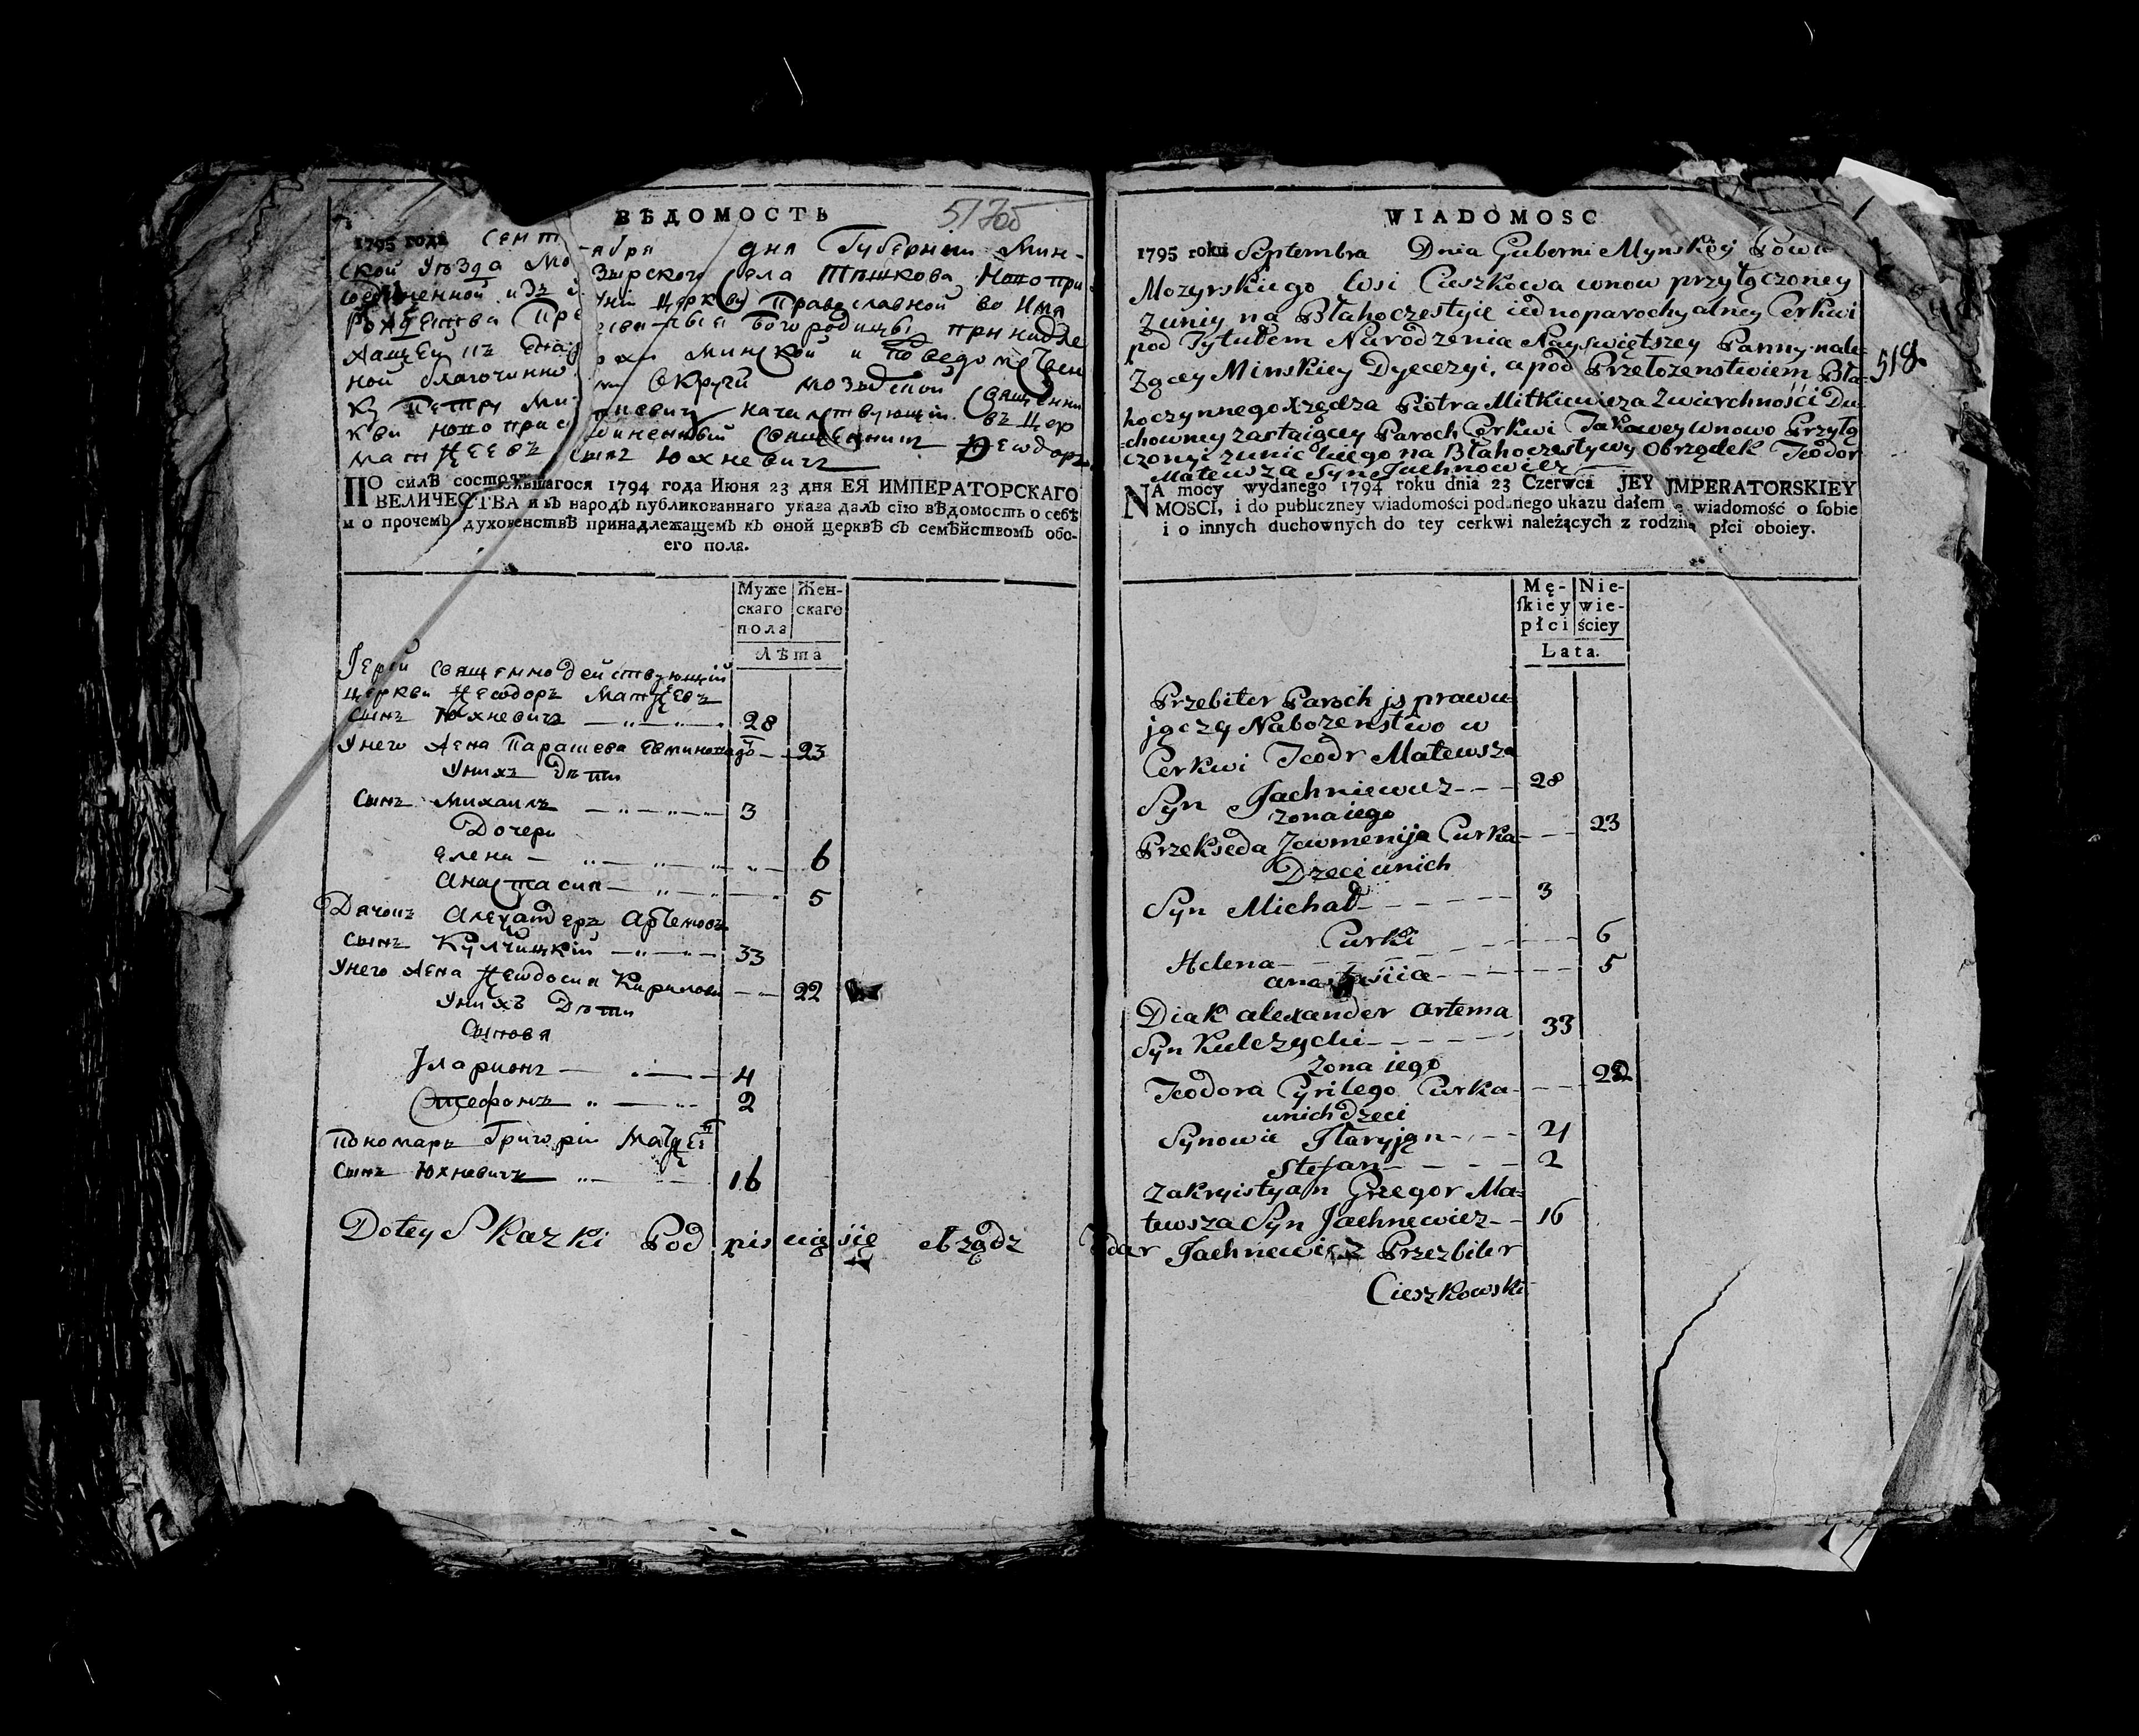 ВѢДОМОСТЬ
1795 года Сентября дня Губернии Мин-
ской Уѣзда Мозырского Села Тѣшкова, Новопри
соединенной изъ Унiи Церкви Православной во Имя
Рождества Пресвятыя Богородицы принадле
жащей къ Епархи Минской и Поведомствен
ной благочинно Округи мозырской Священни
ку Петру Миткевичу начальствующiй въ Цер
кви новоприсоединенный Священникъ Ѳеѡдоръ
Матѳеевъ Сынъ Юхневичъ
ПО силѣ состоявшагося 1794 года Июня 23 дня ЕЯ ИМПЕРАТОРСКАГО
ВЕЛИЧЕСТВА и въ народъ публикованнаго указа далъ сїю вѣдомость о себѣ
и о прочемъ духовенствѣ принадлежащемъ къ оной церквѣ съ семѣйствомъ обо-
его пола.
Муже Жен-
скаго скаго
пола
Лѣта
Iерей Священнодействующiй
церкви Ѳеѡдоръ Матѳеевъ
Сынъ Юхневичъ 28
Унего жена Парасева 23
Унихъ Дѣти
Сынъ Михаилъ 3
Дочери
Елена 6
Анастасия 5
Дячокъ Алеѯандеръ Артемовъ
Сынъ Кулчицкiй 33
Унего жена Ѳеѡдосия Кирилова 22
Унихъ Дѣти
Сынове
Iларионъ 4
Стефанъ 2
Пономарь Григорiй Матѳеевъ
Сынъ Юхневичъ 16
Dotey Skazki Podpisuię się
WIADOMOSC
51705
1795 roku Septembra Dnia Guberni Mynskiey Powia
Mozyrskiego Wsi Cieszkowa wnow przyłączoney
Zuniy na Błahoczestyie iednoparochyalney Cerkwi
pod Tytułem Narodzenia Nayswiętszey Panny nale-
Zącey Minskiey Dyecezyi, a pod Przełozenstwiem Bła-
518
hoczynnego Xzędza Piotra Mitkiewicza Zwierchności Du-
chowney zastaiącey Paroch Cerkwi Takowey wnowo Przyłą
czonyi zunickiego na Błahoczestywy Obrządek Teodor
Matewsza Syn Jachnowicz
NA mocy wydanego 1794 roku dnia 23 Czerwca JEY JMPERATORSKIEY
MOSCI, i do publiczney wiadomości podanego ukazu dałem tę wiadomość o sobie
i o innych duchownych do tey cerkwi należących z rodziną płci oboiey.
Mę- Nie-
skiey wie-
płci ściey
Lata.
Przebiter Paroch js prawu-
jączy Nabozenstwo w
Cerkwi Teodr Matewsza
Syn Jachniewicz 28
zona iego
Przekseda Jewmenija Curka 23
Dzieci unich
Syn Michał 3
Curki
Helena 6
anastasiia 5
Diak alexander artema
Syn Kulczycki 33
zona iego
Teodora Cyrilego Curka 22
unich dzeci
Synowie Jlaryjąn 4
Stefan 2
zakryistyan Grzegor Ma-
tewsza Syn Jachnewicz 16
Jachnewicz Przezbiter
Cieszkowski